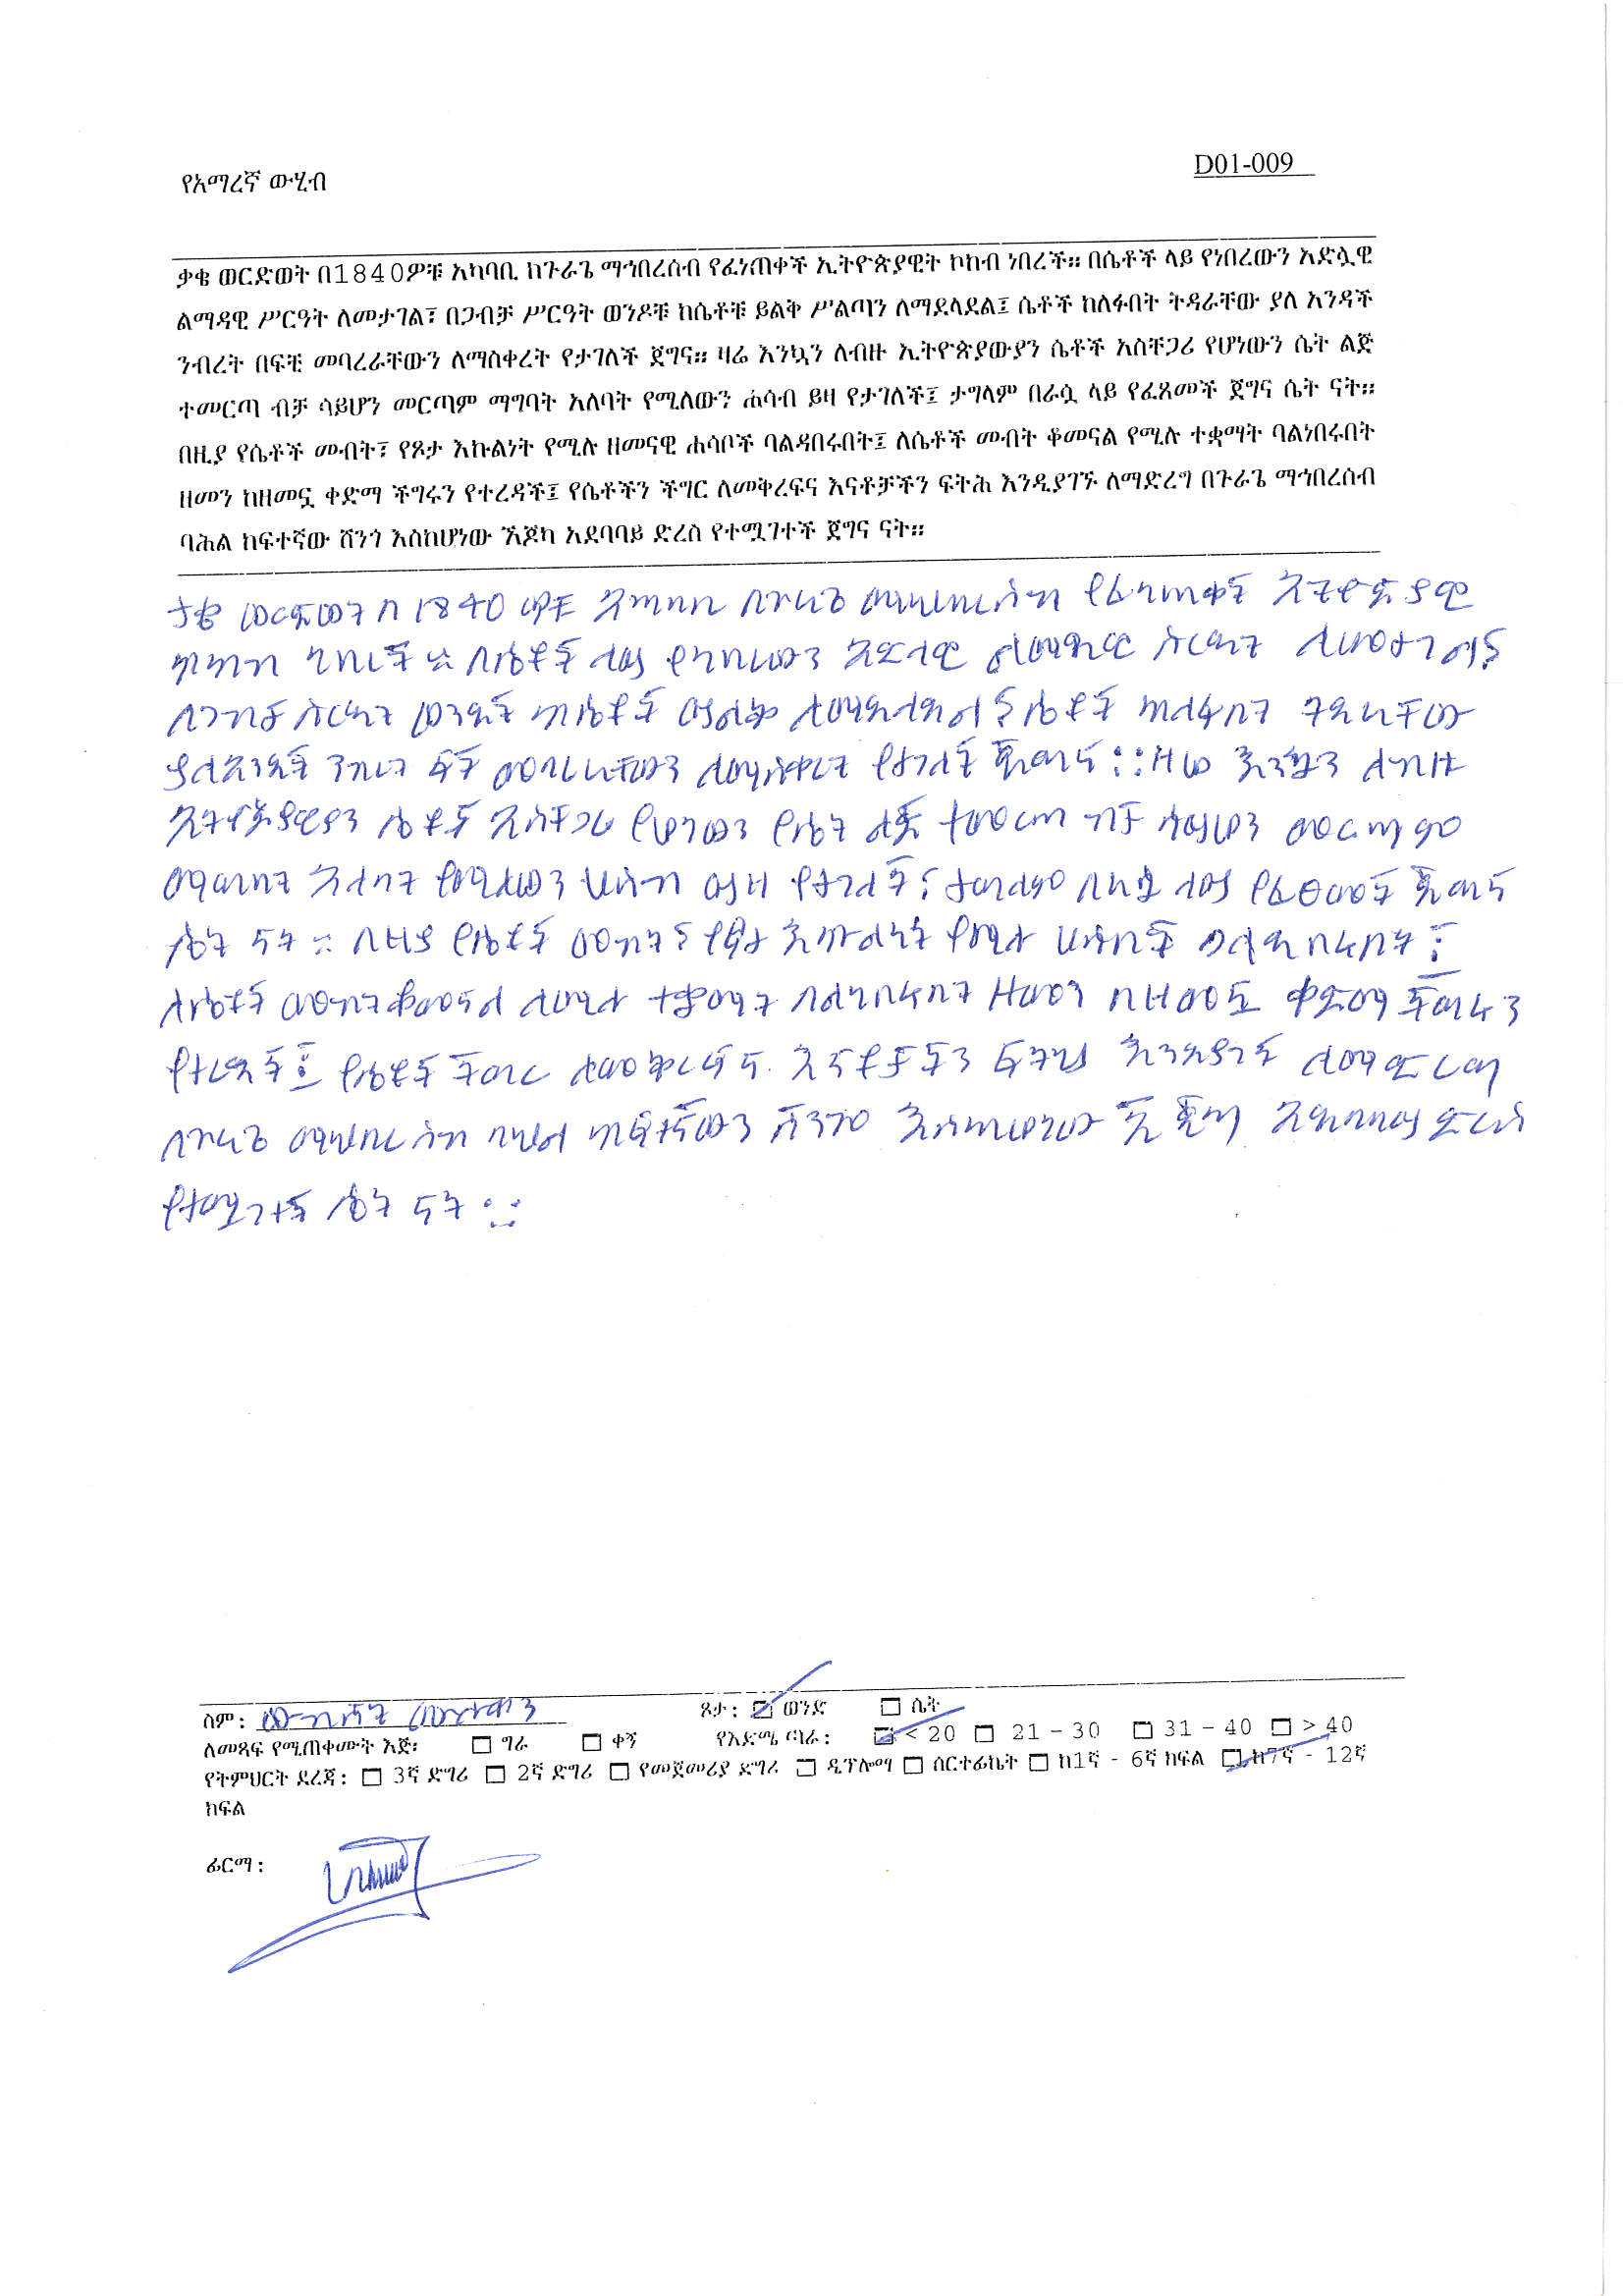 የአማረኛ ውሂብ
D01-009
ቃቄ ወርድወት በ1840ዎቹ አካባቢ ከጉራጌ ማኅበረሰብ የፈነጠቀች ኢትዮጵያዊት ኮከብ ነበረች። በሴቶች ላይ የነበረውን አድሏዊ
ልማዳዊ ሥርዓት ለመታገል፣ በጋብቻ ሥርዓት ወንዶቹ ከሴቶቹ ይልቅ ሥልጣን ለማደላደል፤ ሴቶች ከለፉበት ትዳራቸው ያለ አንዳች
ንብረት በፍቺ መባረራቸውን ለማስቀረት የታገለች ጀግና። ዛሬ እንኳን ለብዙ ኢትዮጵያውያን ሴቶች አስቸጋሪ የሆነውን ሴት ልጅ
ተመርጣ ብቻ ሳይሆን መርጣም ማግባት አለባት የሚለውን ሐሳብ ይዛ የታገለች፤ ታግላም በራሷ ላይ የፈጸመች ጀግና ሴት ናት።
በዚያ የሴቶች መብት፣ የጾታ እኩልነት የሚሉ ዘመናዊ ሐሳቦች ባልዳበሩበት፤ ለሴቶች መብት ቆመናል የሚሉ ተቋማት ባልነበሩበት
ዘመን ከዘመኗ ቀድማ ችግሩን የተረዳች፤ የሴቶችን ችግር ለመቅረፍና እናቶቻችን ፍትሕ እንዲያገኙ ለማድረግ በጉራጌ ማኅበረሰብ
ባሕል ከፍተኛው ሸንጎ እስከሆነው ኧጆካ አደባባይ ድረስ የተሟገተች ጀግና ናት።
ታቄ ወርድወት በ 1840 ዎቹ አካባቢ ከጉራጌ ማህበረሰብ የፈነጠቀች ኢትዮጵያዊ
ኮከብ ነበረች ። በሴቶች ላይ የነበረውን አድላዊ ልማዳዊ ስርዓት ለመታገል፣
በጋብቻ ስርዓት ወንዶች ከሴቶች ይልቅ ለማደላደል፣ ሴቶች ከለፉበት ትዳራቸው
ያለአንዳች ንብረት ፍች መባረራቸውን ለማስቀረት የታገለች ጀግና ።ዛሬ እንኳን ለብዙ
ኢትዮጵያዊያን ሴቶች አስቸጋሪ የሆነውን የሴት ልጅ ተመርጣ ብቻ ሳይሆን መርጣም
ማግባት አለባት የሚለውን ሀሳብ ይዛ የታገለች፣ ታግላም በራሷ ላይ የፈፀመች ጀግና
ሴት ናት ። በዚያ የሴቶች መብት፣ የፆታ እኩልነት የሚሉ ሀሳቦች ባልዳበሩበት ፤
ለሴቶች መብት ቆመናል ለሚሉ ተቋማት በልነበሩበት ዘመን ከዘመኗ ቀድማ ችግሩን
የተረዳች፤ የሴቶች ችግር ለመቅረፍና እናቶቻችን ፍትህ እንዲያገኙ ለማድረግ
በጉራጌ ማህበረሰብ ባህል ከፍተኛውን ሸንጎ እስከሆነው ኧ ጆካ አደባባይ ድረስ
የተሟገተች ሴት ናት ።
ስም:
ጾታ: ወንድ ሴት
ለመጻፍ የሚጠቀሙት እጅ፡ ግራ ቀኝ የእድሜ ጣራ: < 20 21 – 30 31 – 40 > 40
የትምህርት ደረጃ: 3ኛ ድግሪ 2ኛ ድግሪ የመጀመሪያ ድግሪ ዲፕሎማ ሰርተፊኬት ከ1ኛ - 6ኛ ክፍል ከ7ኛ - 12ኛ
ክፍል
ፊርማ: